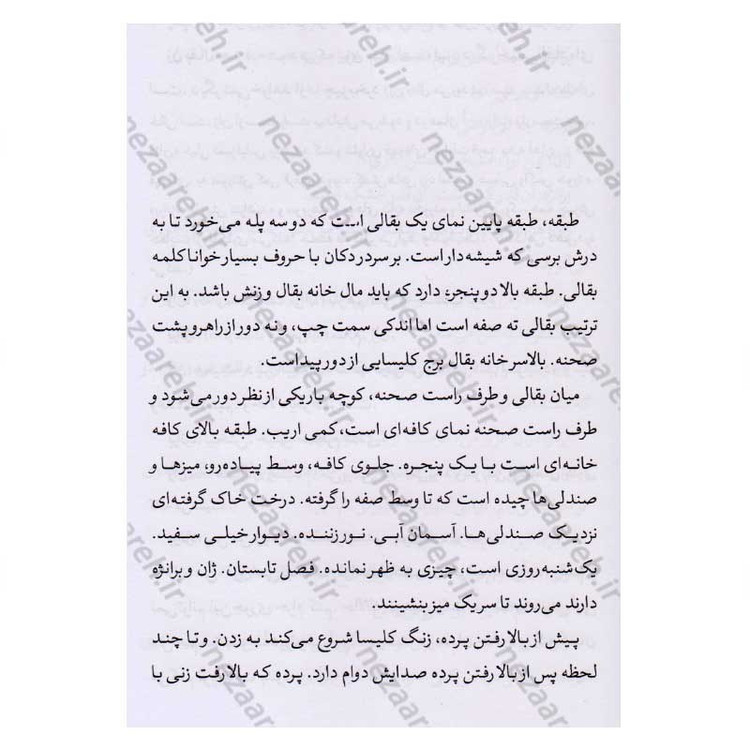 طبقه، طبقه پایین نمای یک بقالی است که دو سه پله می‌خورد تا به
درش برسی که شیشه‌دار است. بر سر در دکان با حروف بسیار خوانا کلمه
بقالی. طبقه بالا دو پنجره دارد که باید مال خانه بقال و زنش باشد. به این
ترتیب بقالی ته صفه است اما اندکی سمت چپ، و نه دور از راهرو پشت
صحنه. بالاسر خانه بقال برج کلیسایی از دور پیداست.
میان بقالی و طرف راست صحنه، کوچه باریکی از نظر دور می‌شود و
طرف راست صحنه نمای کافه‌ای است، کمی اریب. طبقه بالای کافه
خانه‌ای است با یک پنجره. جلوی کافه، وسط پیاده‌رو، میزها و
صندلی‌ها چیده است که تا وسط صفه را گرفته. درخت خاک گرفته‌ای
نزدیک صندلی‌ها. آسمان آبی. نور زننده. دیوار خیلی سفید.
یک‌شنبه روزی است، چیزی به ظهر نمانده. فصل تابستان. ژان و برانژه
دارند می‌روند تا سر یک میز بنشینند.
پیش از بالا رفتن پرده، زنگ کلیسا شروع می‌کند به زدن. و تا چند
لحظه پس از بالا رفتن پرده صدایش دوام دارد. پرده که بالا رفت زنی با
nezaareh.ir